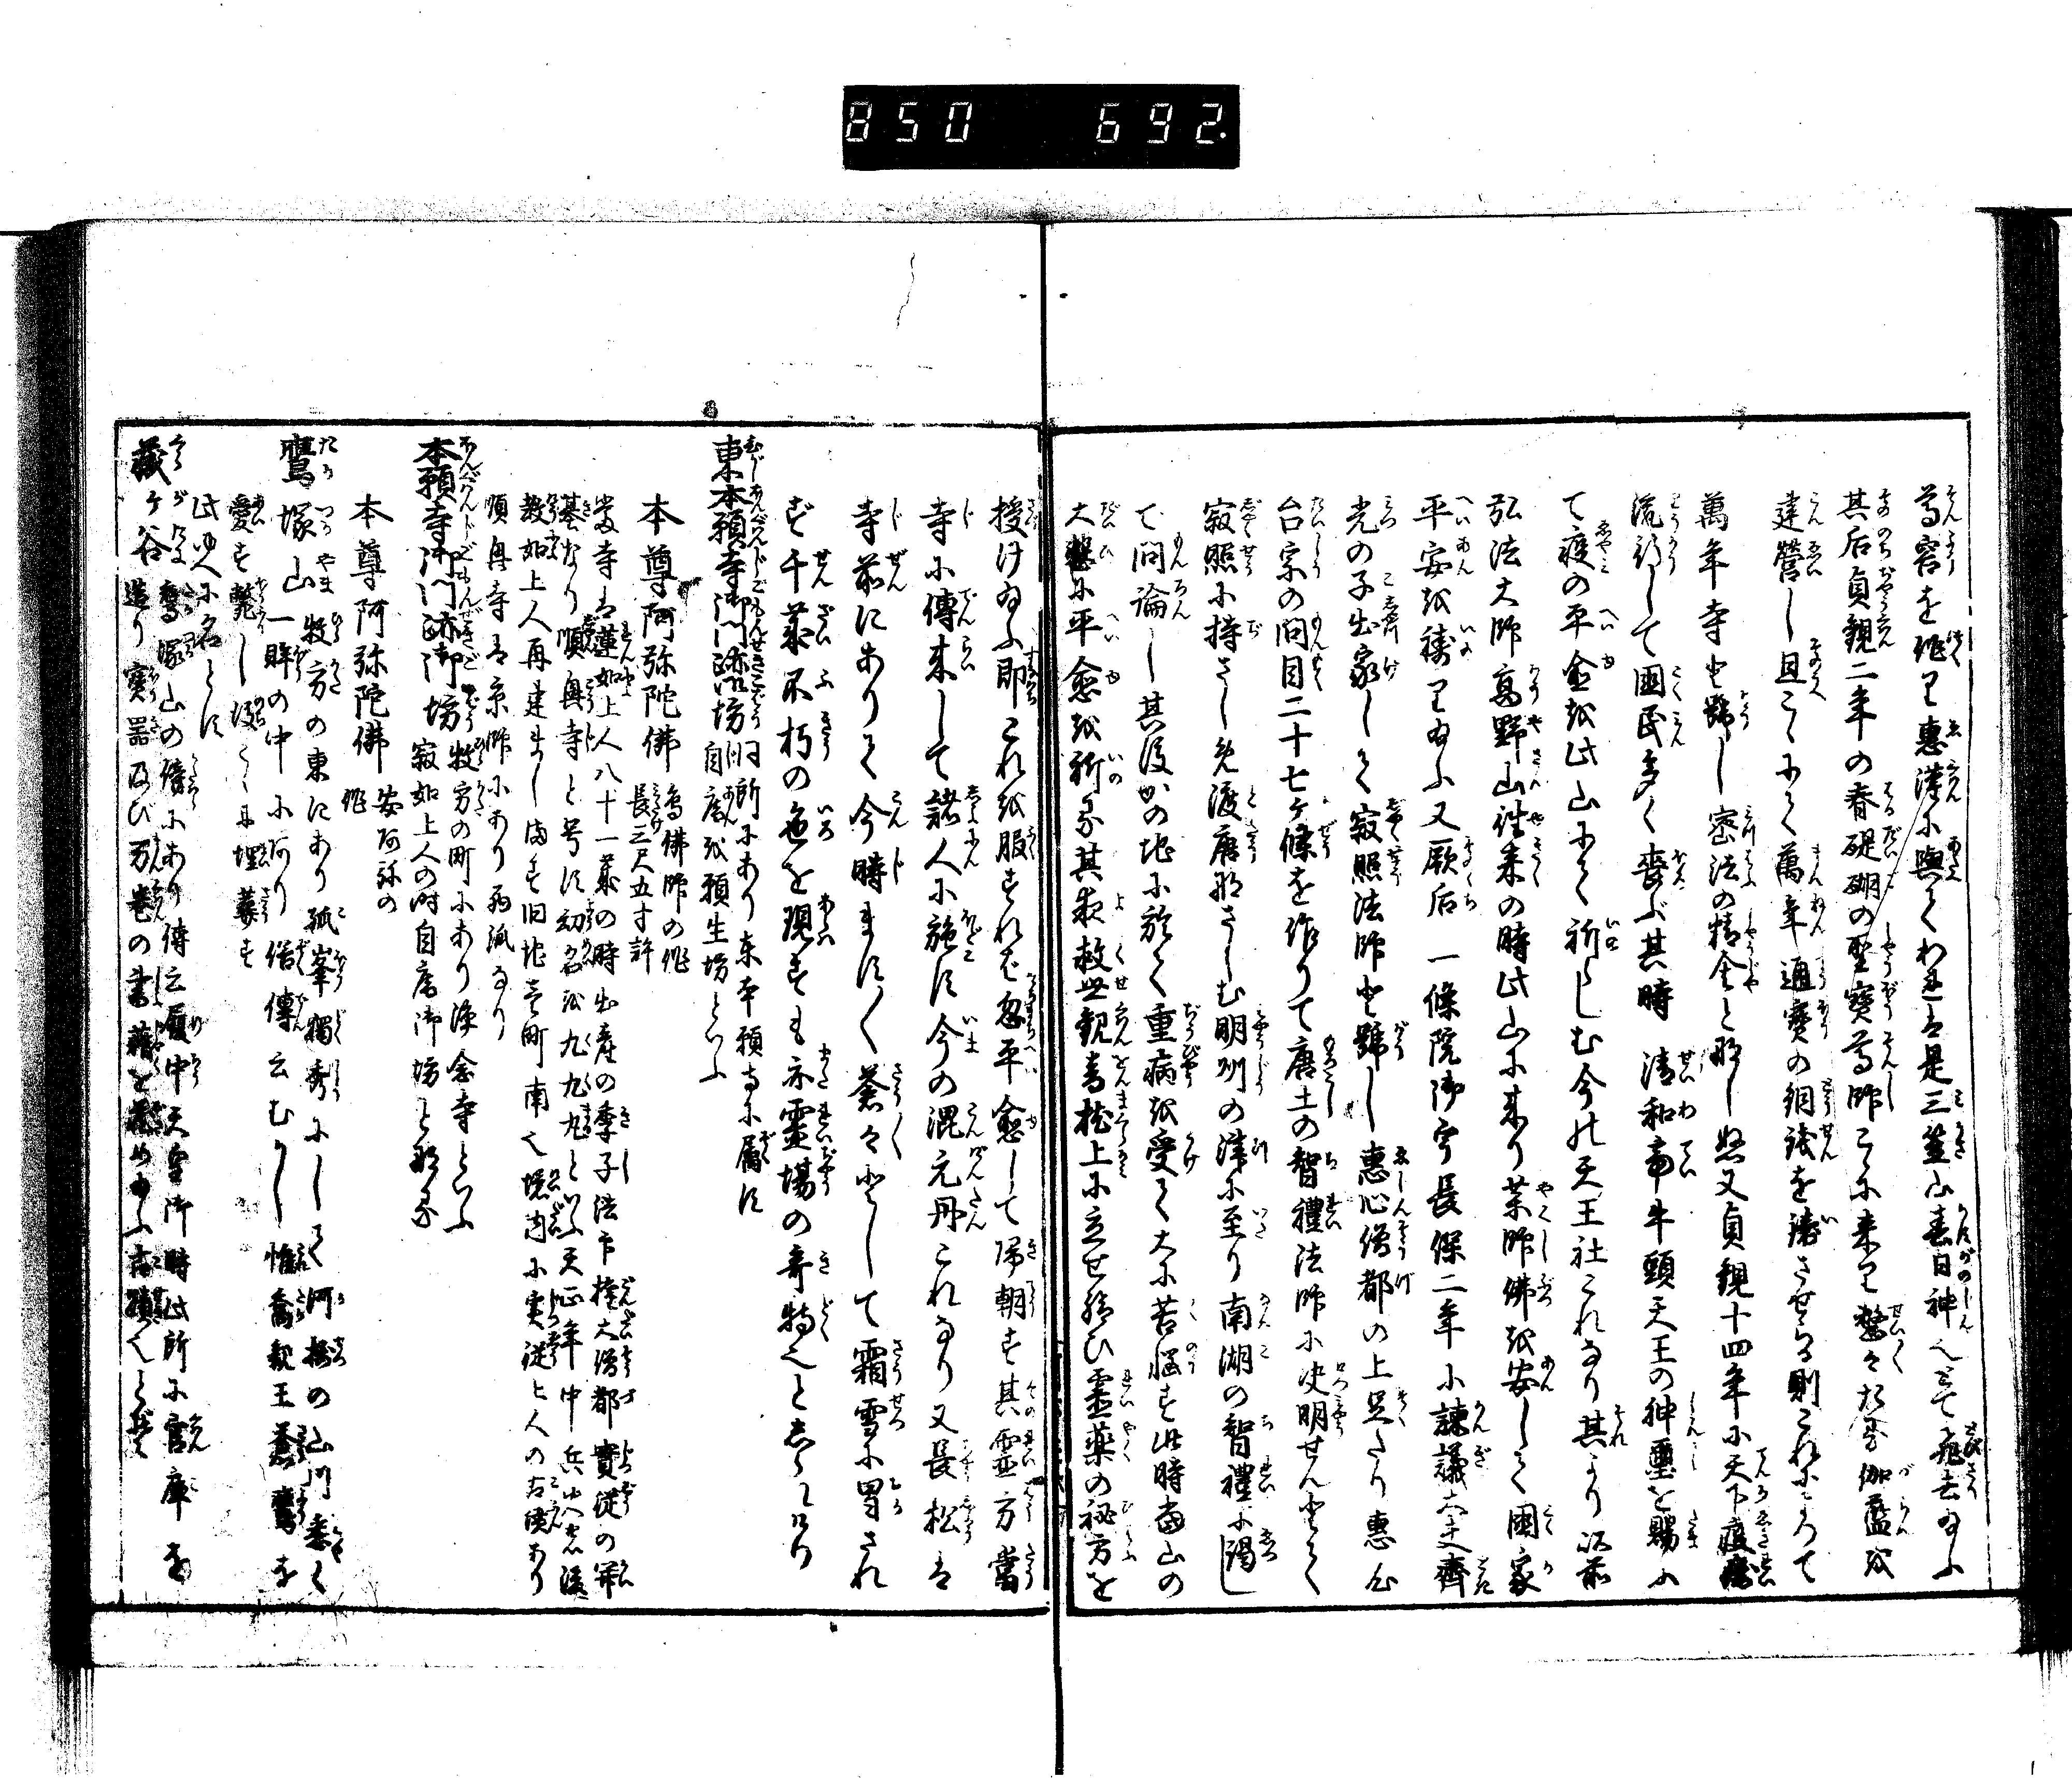 850 692.
尊容を作り惠灌に與てわれは是三笠山春日神也とて飛去給ふ
其后貞観二年の春醍醐の聖寳尊師こゝに来り
伽藍を
建営し且こゝにて萬年通寳の銅銭を鋳させらる則これによつて
萬年寺と号し密法の精舎と
又貞観十四年に天下疫癘
流行して國民多く喪ぶ其時清和帝牛頭天王の神璽を賜ふ
て疫の平愈を此山にて祈らしむ今の天王社これなり其より以前
弘法大師高野山往来の時此山に来り薬師佛を安して國家
平安を祷り給ふ又厥后一條院御宇長保二年に諫議大夫齊
光の子出家して寂照法師と号し惠心僧都の上足たり惠心
台宗の問目二十七ケ條を作りて唐土の智禮法師に决明せんとて
寂照に持さしめ渡唐
明州の津に至り南湖の智禮に謁し
て問論し其後かの地に於て重病を受て大に苦悩す此時當山の
大悲に平愈を祈る其夜救世観音枕上に立せ給ひ霊薬の秘方を
授け給ふ即これを服すれば忽平愈して帰朝す其霊方當
寺に傳来して諸人に施す今の混元丹これなり又長松は
寺前にありて今時ます〳〵蒼々として霜雪に冒され
ず千歳不朽の色を現すも亦霊場の奇特也と
東本願寺御門跡御坊 同所にあり東本願寺に属す
自庵を願生坊といふ
本尊阿弥陀佛 鳥佛師の作
長三尺五寸許
當寺は蓮如上人八十一歳の時出産の季子法印権大僧都實従の開
基なり順興寺と号す幼名を九九丸といふ天正年中兵火の後
教如上人再建まします旧地は町南之境内に実従上人の古墳あり
順興寺は京師にあり
本願寺御門跡御坊 牧方の町にあり浄念寺といふ
寂如上人の時自庵御坊となる
本尊阿弥陀佛 安阿弥の
作
鷹塚山 牧方の東にあり孤峯獨秀にして河攝の山川悉く
一眸の中にあり俗傳云むかし惟喬親王蒼鷹を
愛す斃し後こゝに埋葬す
此ゆへに名とす
藏ケ谷 鷹塚山の傍にあり傳云履中天皇御時此所に官庫を
造り寳器及び万巻の書籍を藏め給ふ古蹟也とぞ